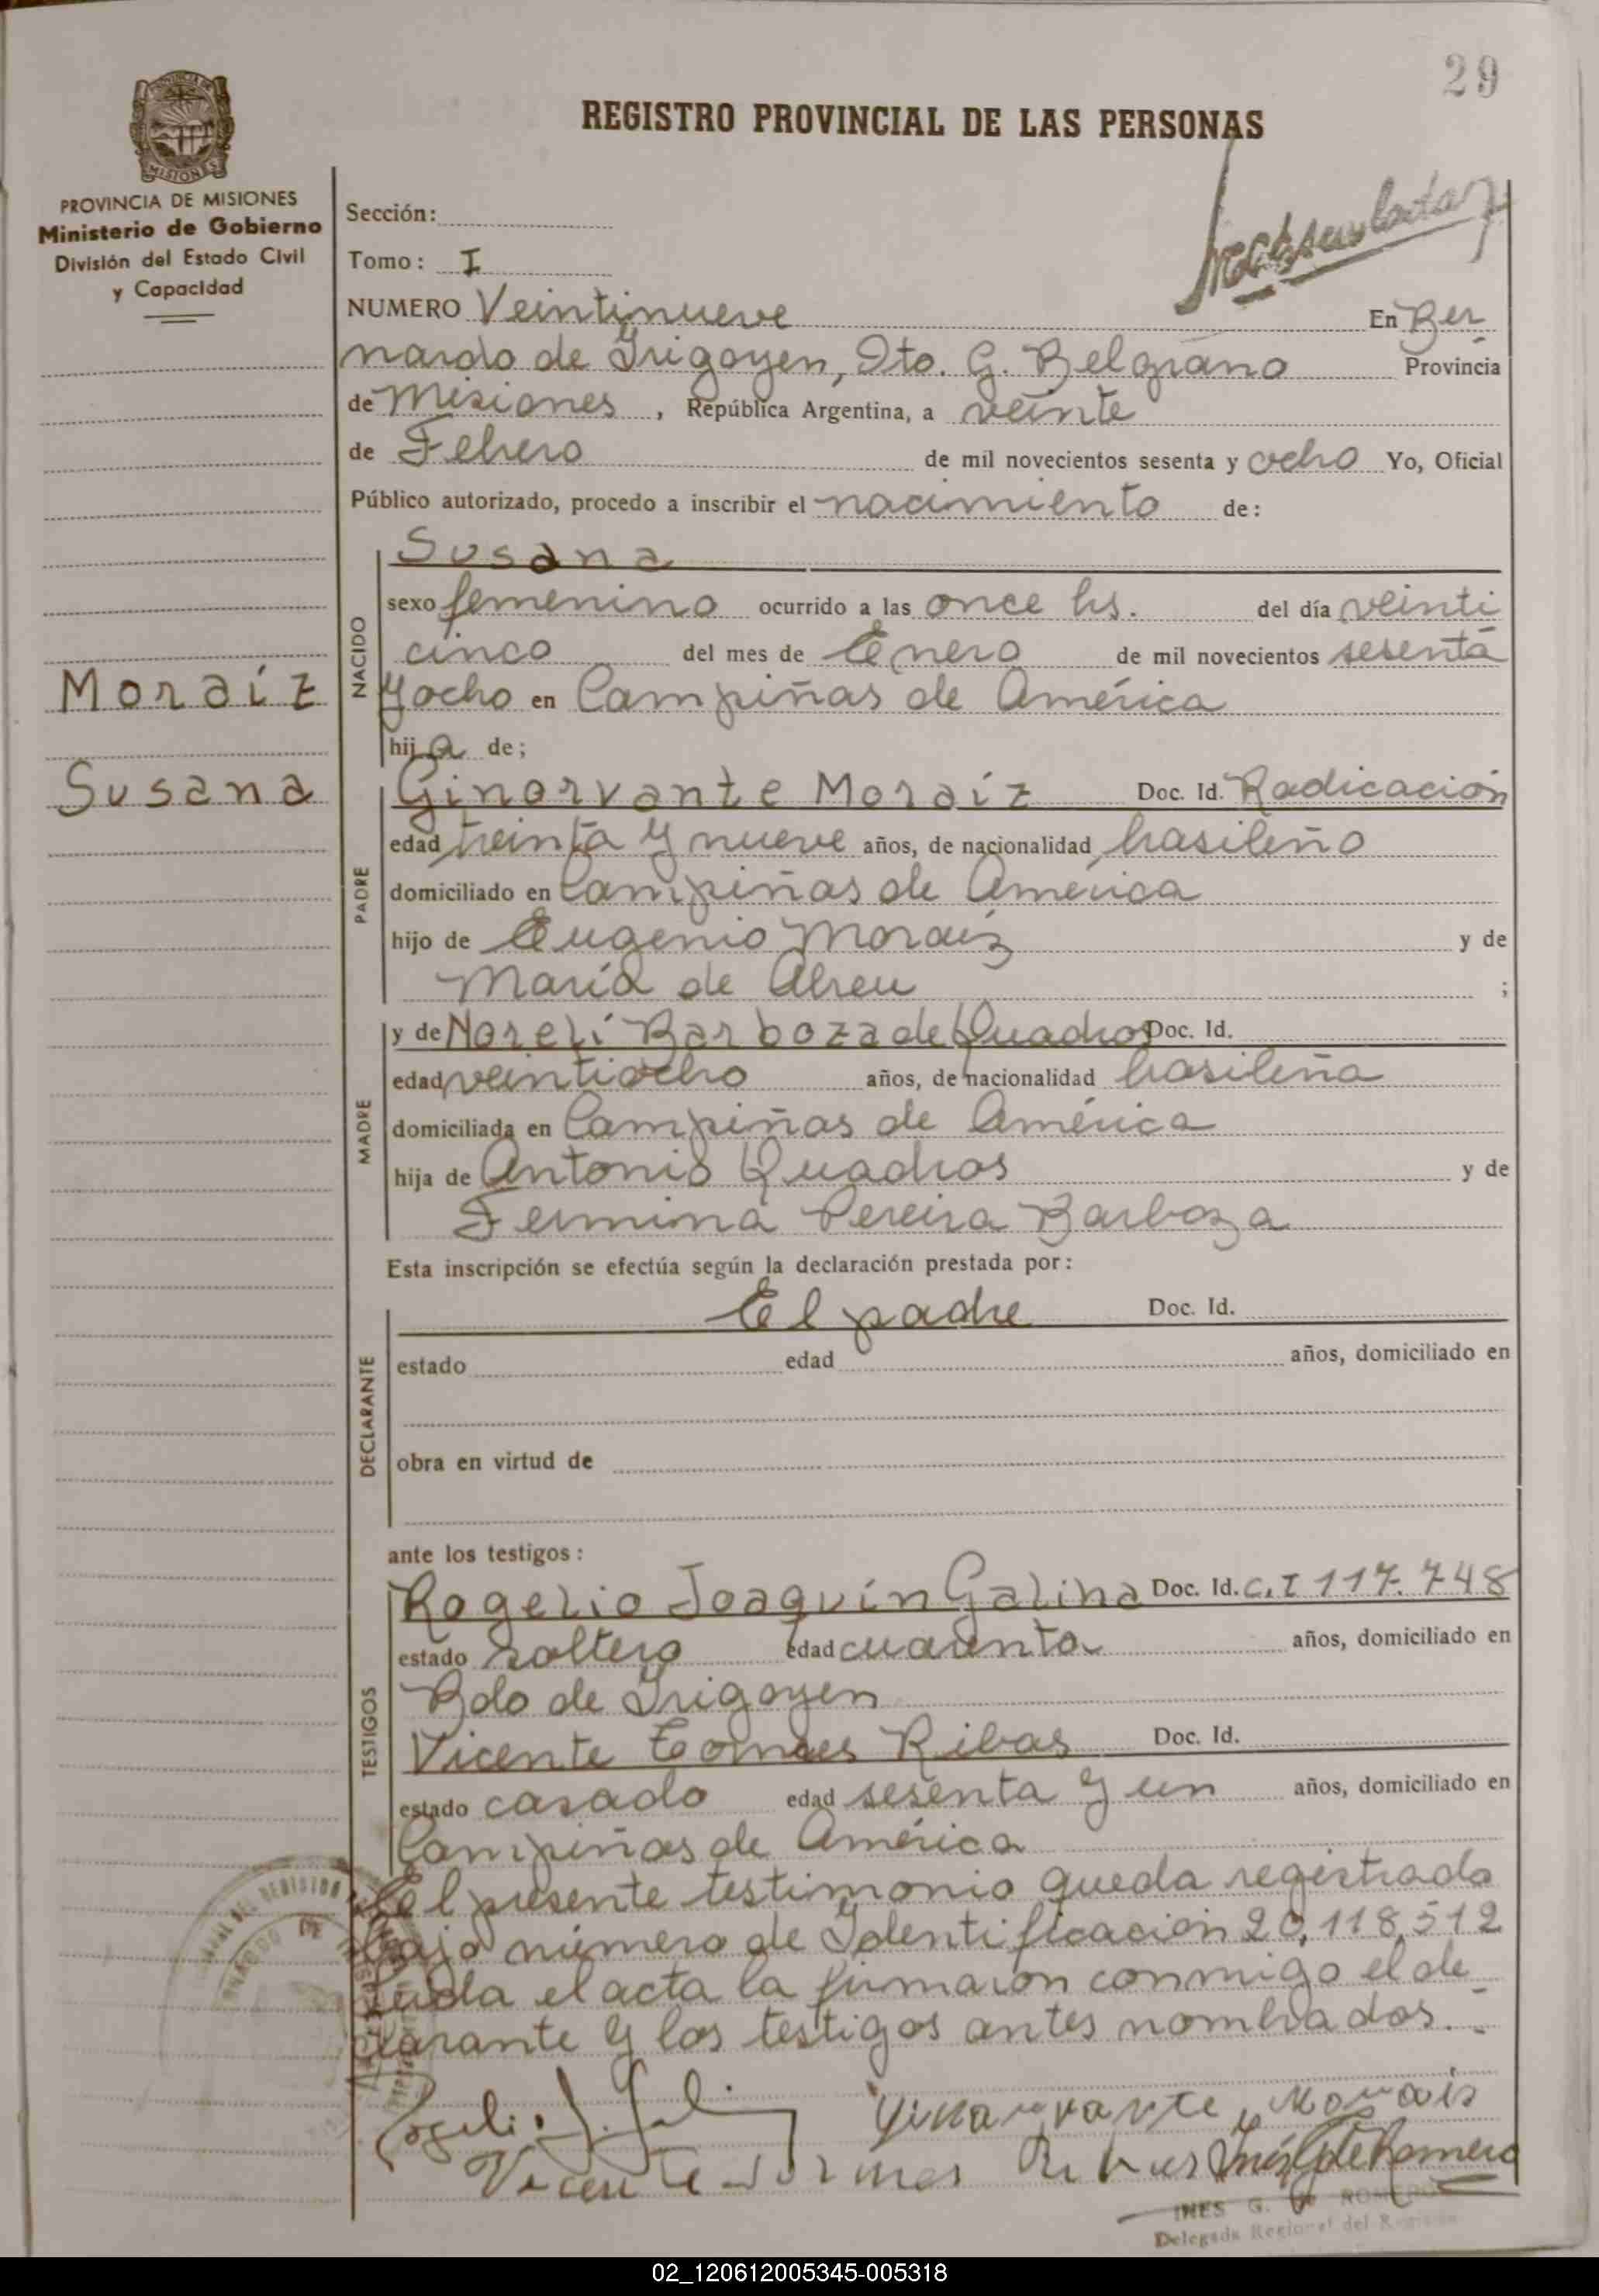 29
REGISTRO PROVINCIAL DE LAS PERSONAS
PROVINCIA DE MISIONES
Ministerio de Gobierno
División del Estado Civil
y Capacidad
Sección:
Tomo: I
NUMERO Veintinueve En Ber
nardo de Irigoyen, Dto. G. Belgrano Provincia
de Misiones, República Argentina, a veinte
de Febrero de mil novecientos sesenta y ocho Yo, Oficial
Público autorizado, procedo a inscribir el nacimiento de:
Moraíz
Susana
NACIDO
Susana
sexo femenino ocurrido a las once hs. del día veinti
cinco del mes de Enero de mil novecientos sesenta
y ocho en Campiñas de América
hija de;
PADRE
Ginorvante Moraíz Doc. Id. Radicación
edad treinta y nueve años, de nacionalidad brasileño
domiciliado en Campiñas de América
hijo de Eugenio Moraiz y de
María de Abreu ;
MADRE
y de Norelí Barboza de Quadros Doc. Id.
edad veintiocho años, de nacionalidad brasileña
domiciliada en Campiñas de América
hija de Antonio Quadros y de
Fermina Pereira Barboza
Esta inscripción se efectúa según la declaración prestada por:
DECLARANTE
El padre Doc. Id.
estado edad años, domiciliado en
obra en virtud de
ante los testigos:
TESTIGOS
Rogelio Joaquín Galina Doc. Id. C.I 117.748
estado soltero edad cuarenta años, domiciliado en
Bdo de Irigoyen
Vicente Ribas Doc. Id.
estado casado edad sesenta y un años, domiciliado en
Campiñas de América
El presente testimonio queda registrado
bajo número de Identificación 20,118,512
el acta la firmaron conmigo el de
clarante y los testigos antes nombrados.-
Vicente
INES G. DE ROMERO
Delegada Regional del
02_120612005345-005318